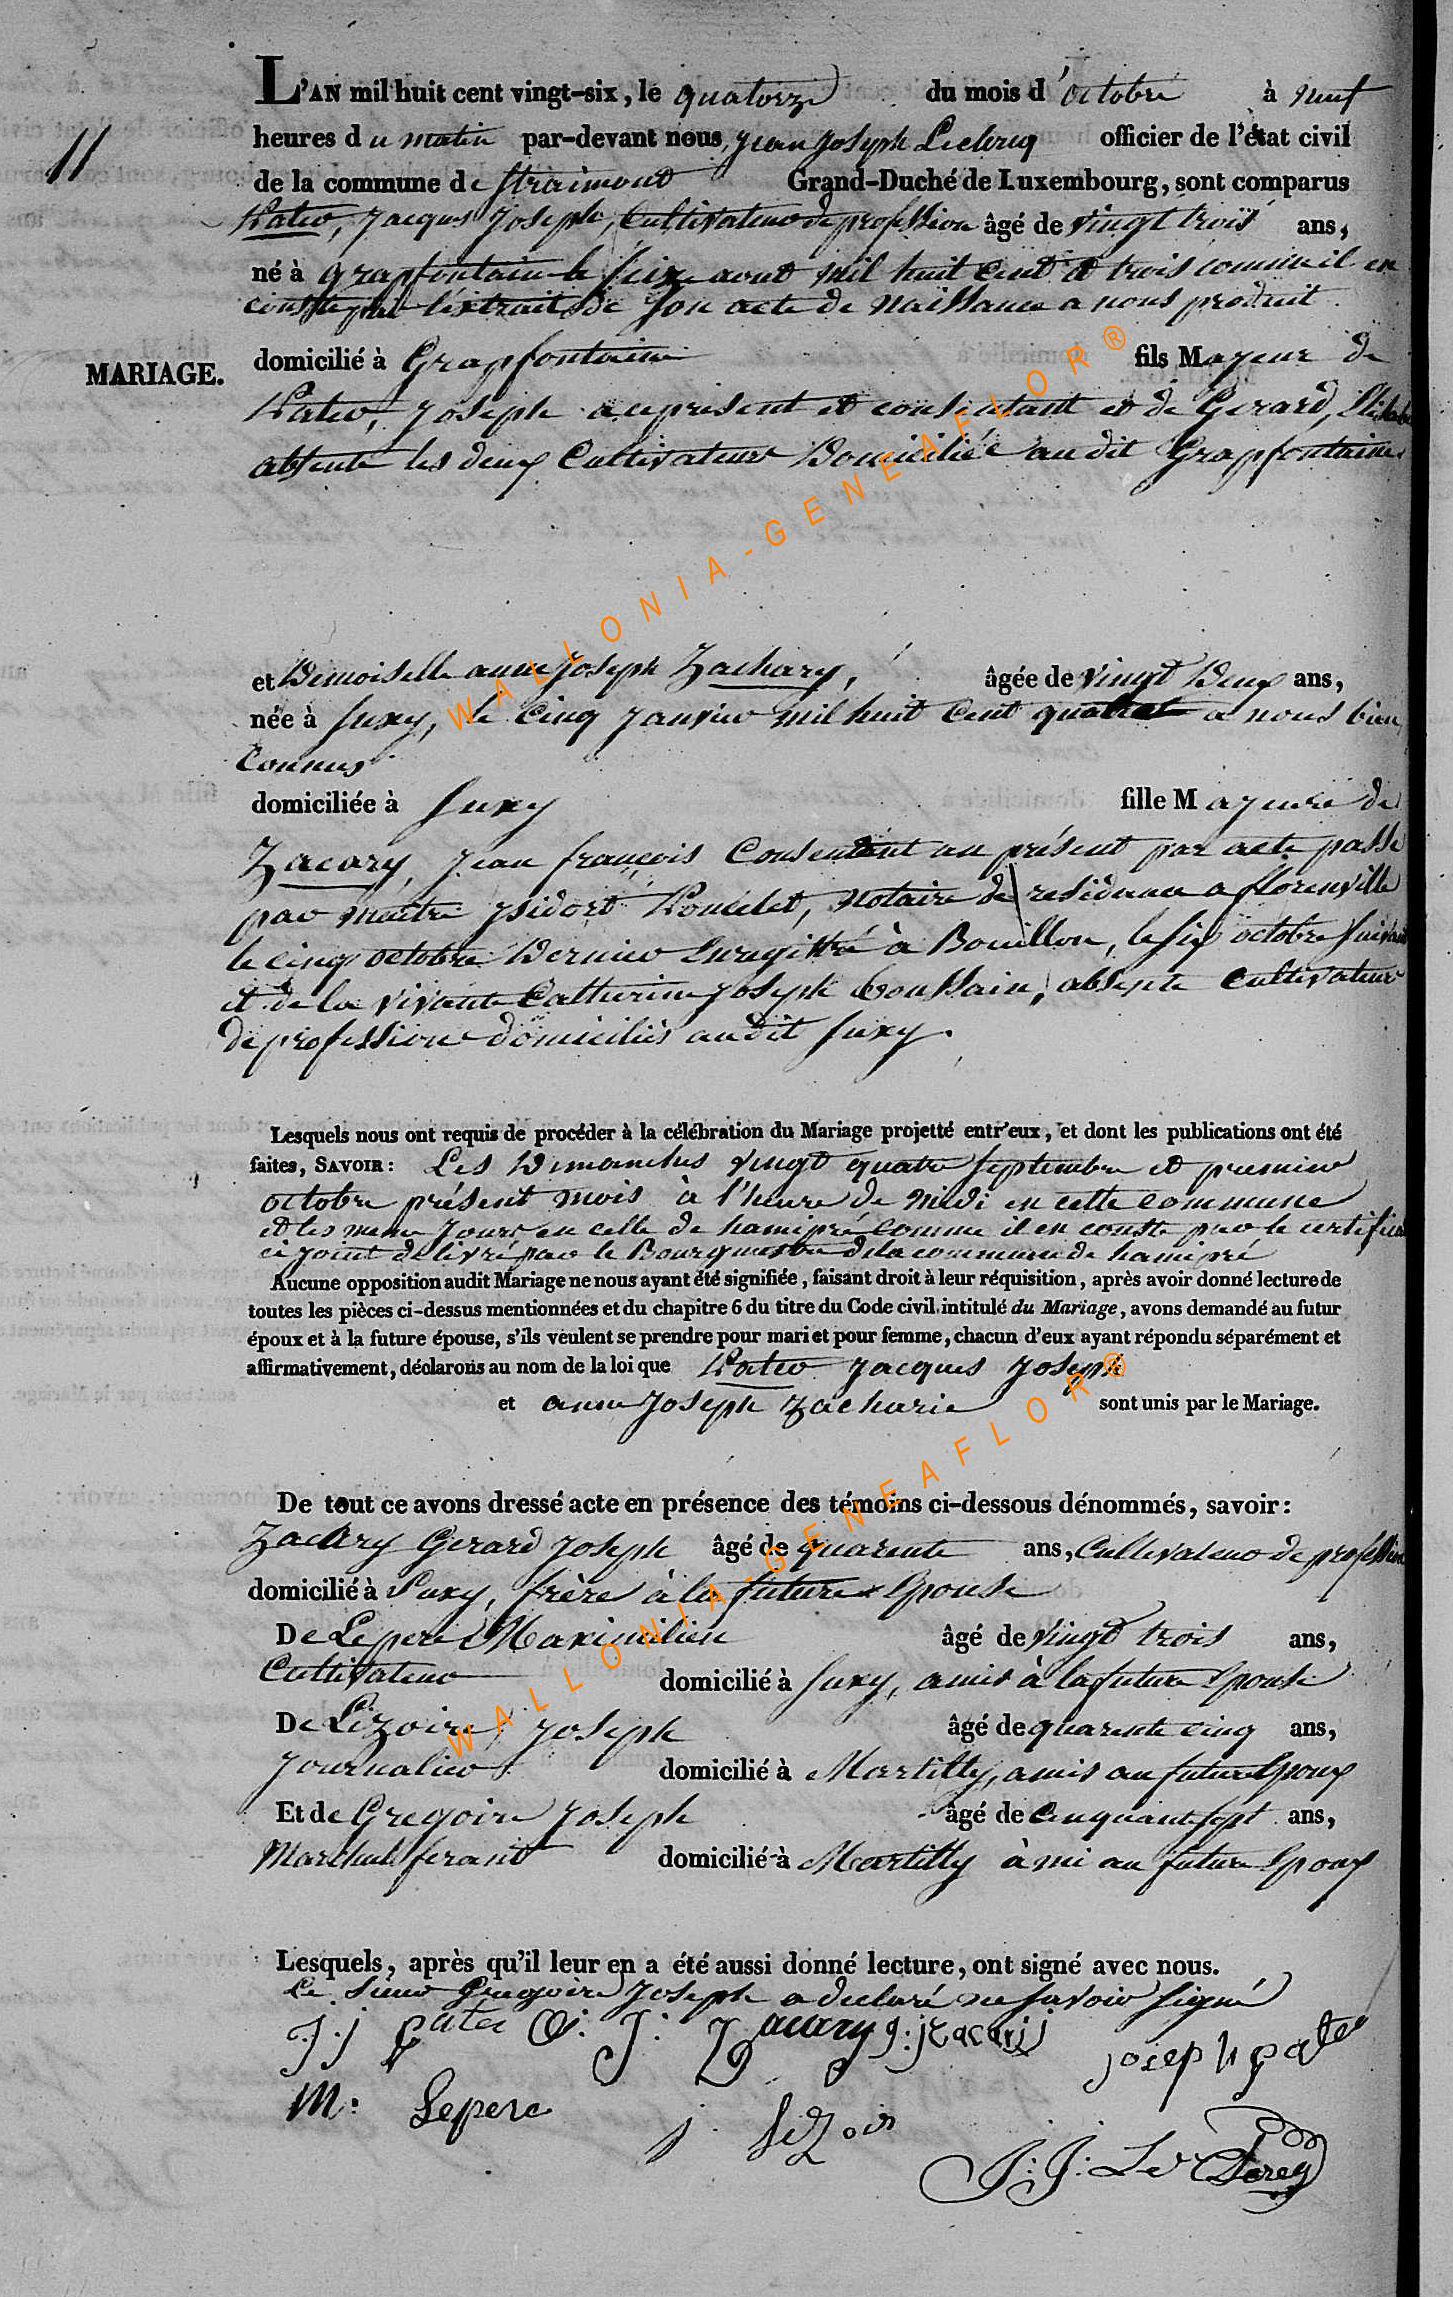 L'AN mil huit cent vingt-six, le quatorze du mois d'octobre à neuf
11
heures du matin par-devant nous, jean joseph Leclercq officier de l'état civil
de la commune de straimont Grand-Duché de Luxembourg, sont comparus
Pater, jacques joseph, Cultivateur de profession âgé de vingt trois ans,
né à grapfontaine le seize aout mil huit cent et trois comme il en
conste par l'extrait de son acte de naissance a nous produit
MARIAGE.
domicilié à Grapfontaine fils Majeur de
Pater, joseph acepresent et consentant et de Gerard,
absente les deux Cultivateur Domicilié audit Grapfontaine
et Demoiselle anne joseph Zachary, âgée de vingt Deux ans,
née à suxy, le cinq janvier mil huit cent quatre a nous bien
Connus
domiciliée à Suxy fille Majeure de
Zacary, jean françois Consentant au présent par acte passé
par maitre ysidort Poncelet, Notaire de residence a florenville
le cinq octobre Dernier Enregittré à Bouillon, le six octobre suivant
et de la vivante Catherine joseph Goussain, absente Cultivateur
de profession domiciliés audit suxy.
Lesquels nous ont requis de procéder à la célébration du Mariage projetté entr'eux, et dont les publications ont été
faites, SAVOIR: Les Dimanches vingt quatre septembre et premier
octobre présent mois à l'heure de midi en cette commune
et les meme jours, en celle de hamipré comme il en conste par le certificat
ci joint délivré par le Bourgmestre de la commune de hamipré
Aucune opposition audit Mariage ne nous ayant été signifiée, faisant droit à leur réquisition, après avoir donné lecture de
toutes les pièces ci-dessus mentionnées et du chapitre 6 du titre du Code civil intitulé du Mariage, avons demandé au futur
époux et à la future épouse, s'ils veulent se prendre pour mari et pour femme, chacun d'eux ayant répondu séparément et
affirmativement, déclarons au nom de la loi que Pater jacques joseph
et anne joseph zacharie sont unis par le Mariage.
De tout ce avons dressé acte en présence des témoins ci-dessous dénommés, savoir:
Zackry Gerard joseph âgé de quarente ans, Cultivateur de profession
domicilié à Suxy, frère à la future Epouse
De Lepere Maximilien âgé de vingt trois ans,
Cultivateur domicilié à suxy, amis à la future Epouse
De Lizoire joseph âgé de quarente cinq ans,
journalier domicilié à Martilly, amis au future Epoux
Et de Gregoire joseph âgé de cinquante sept ans,
Marchal ferant domicilié à Martilly àmi au future Epoux
Lesquels, après qu'il leur en a été aussi donné lecture, ont signé avec nous.
Le sieur Gregoire joseph a declaré ne savoir signé
j. j pater J: Zacary g: j zacarij joseph pater
M: Lepere j. liZoir
J: J: Le Clercq
WALLONIA-GENEAFLOR®
WALLONIA-GENEAFLOR®